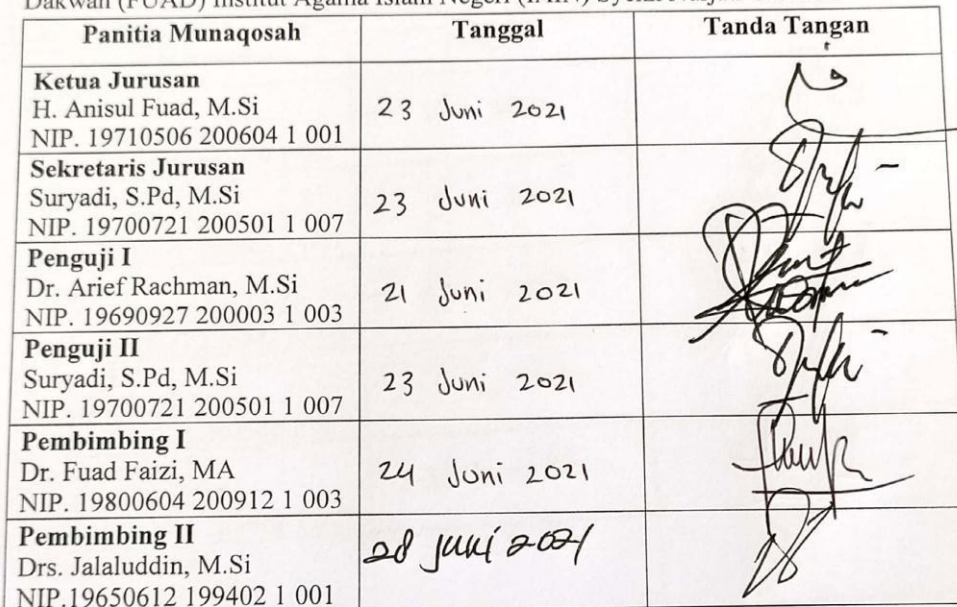 Dakwah (FUAD) Institut Agama Islam Negeri (IAIN) Syekh Nurjati
Panitia Munaqosah Tanggal Tanda Tangan
Ketua Jurusan
H. Anisul Fuad, M.Si
NIP. 19710506 200604 1 001
23 Juni 2021
Sekretaris Jurusan
Suryadi, S.Pd, M.Si
NIP. 19700721 200501 1 007
23 Juni 2021
Penguji I
Dr. Arief Rachman, M.Si
NIP. 19690927 200003 1 003
21 Juni 2021
Penguji II
Suryadi, S.Pd, M.Si
NIP. 19700721 200501 1 007
23 Juni 2021
Pembimbing I
Dr. Fuad Faizi, MA
NIP. 19800604 200912 1 003
24 Juni 2021
Pembimbing II
Drs. Jalaluddin, M.Si
NIP.19650612 199402 1 001
28 juni 2021